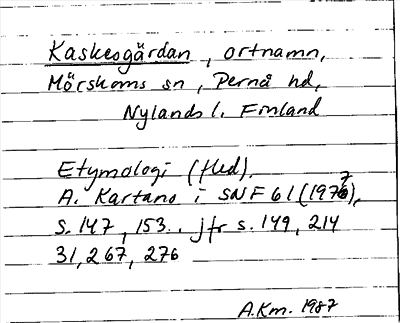 Kaskeogårdan, ortnamn,
Mörskoms sn, Pernå hd,
Nylands l. Finland
Etymologi (fled),
A. Kartano i SNF 61 (1977),
s. 147, 153.. jfr s. 149, 214
31, 267, 276
A.Km. 1987